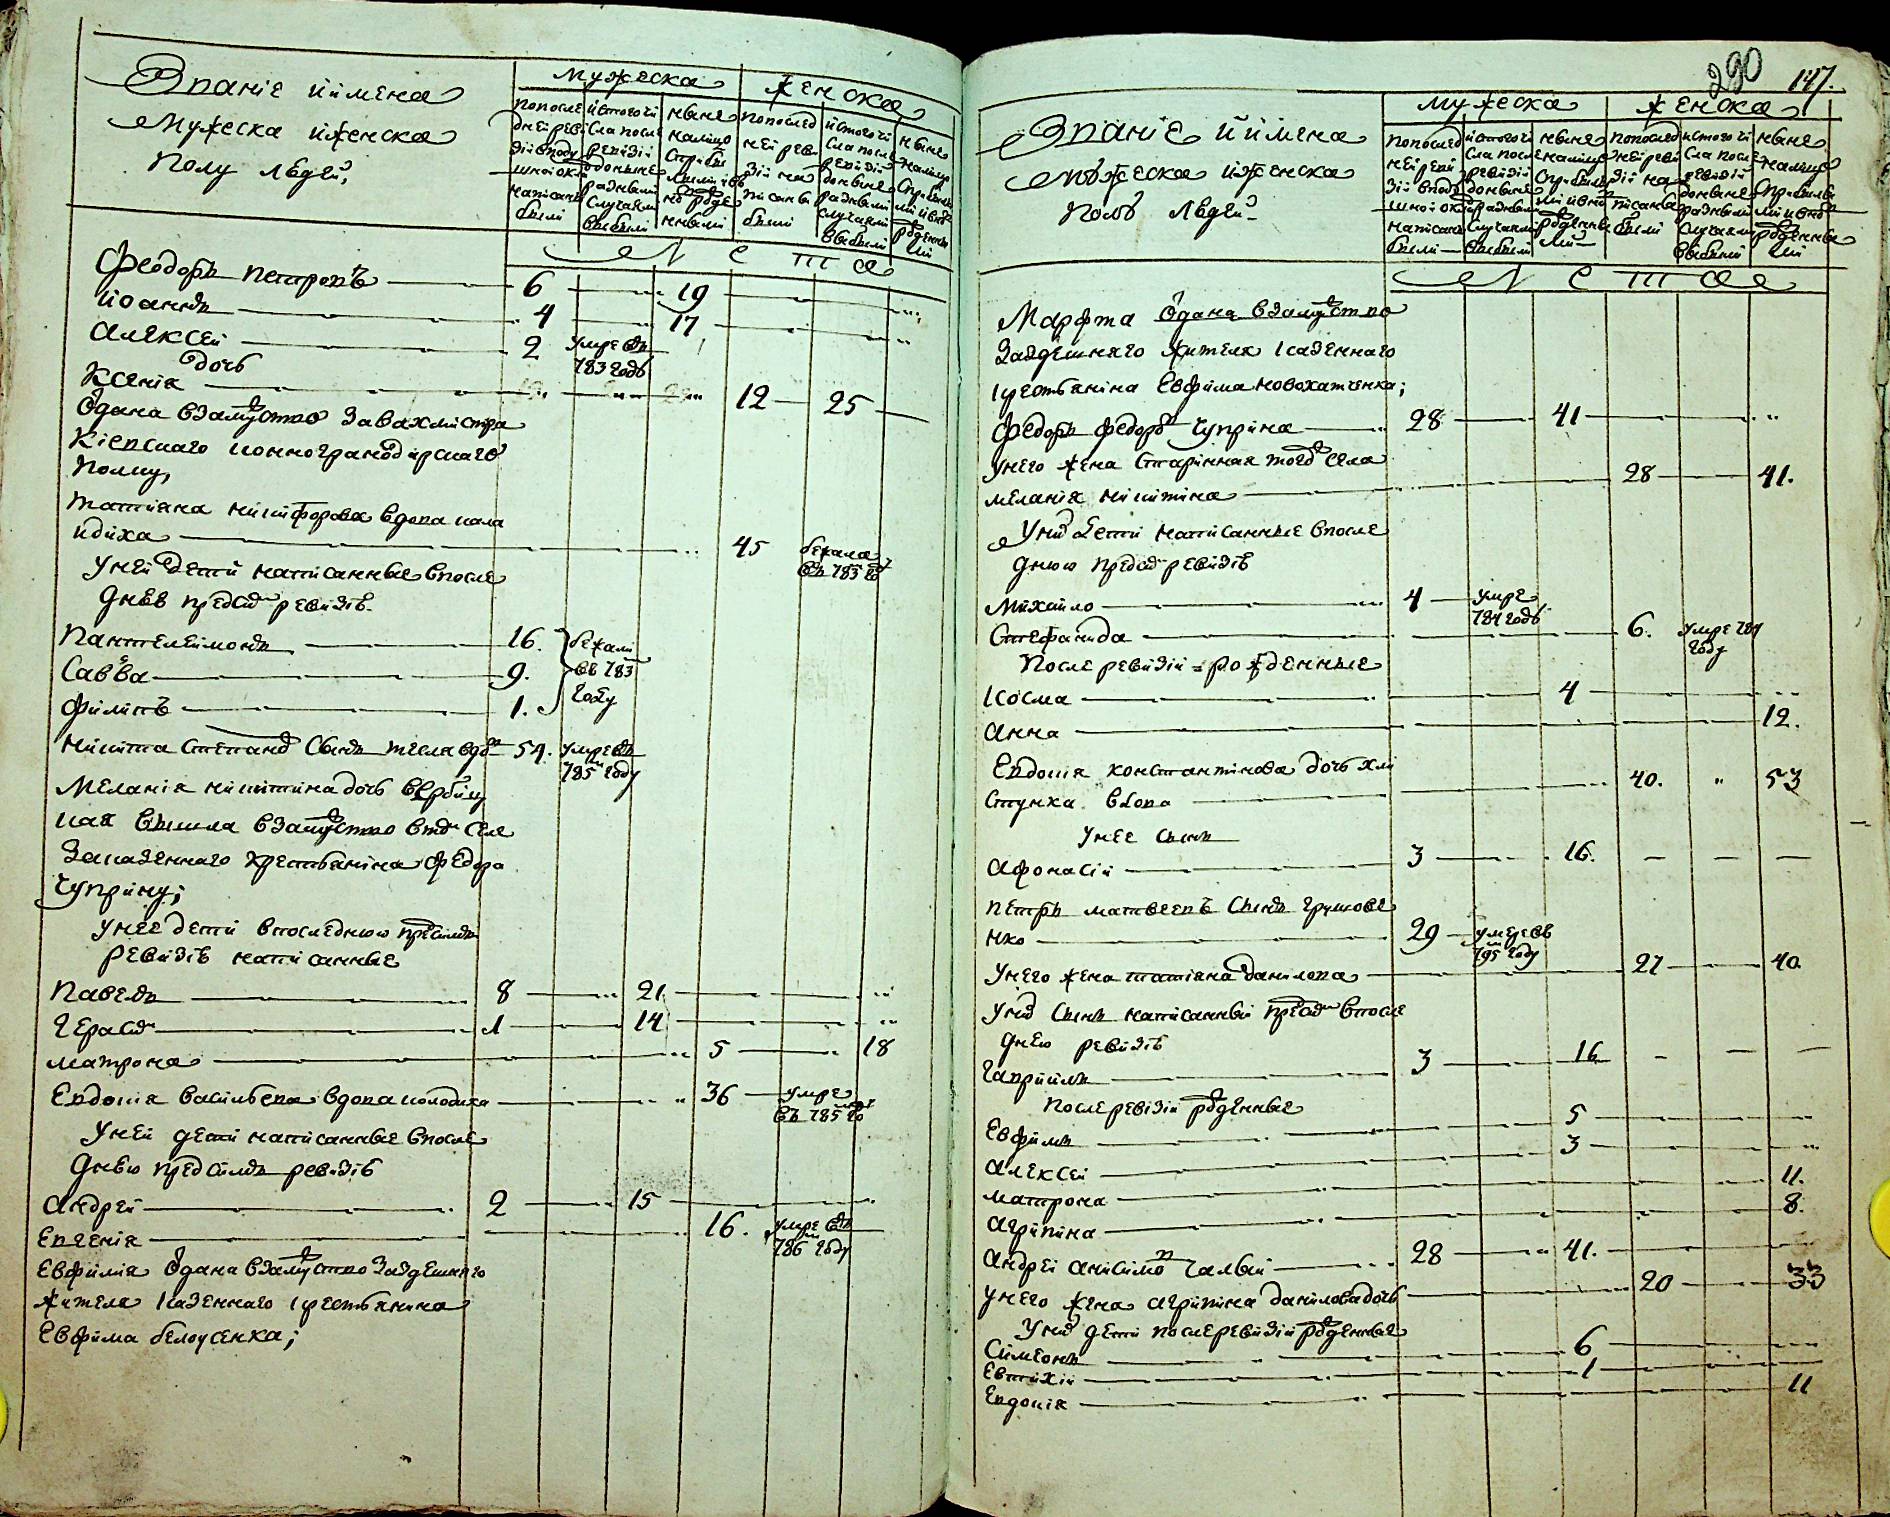 Званіе и имена
Мужеска и женска
полу людей,
мужеска
женска
попосле
дней реви
зіи в поду
шной окл
написани
были
и с того чи
сла после
ревизіи
до ныне
разными
случаями
выбыли
ныне
налицо
с прибы
лыми и в
но рожде
нными
попослед
ней реви
зіи на
писаны
были
и с того чи
сла после
ревизіи
до ныне
разными
случаями
выбыли
ныне
налицо
с прибылы
ми и вно
рожденны
ми
Л Е Т А
Феодоръ Петровъ 6 19
Иоаннъ 4 17
Алексей 2 умре въ 783 годѣ
дочь
Ксенія 12 25
Отдана в замужство за вахмистра
Кіевскаго конногранодирскаго
полку,
Татіяна Никифорова вдова кала
идиха 45 бежала въ 783 го
У ней дети написанные в после
днею пред сим ревизіѣ
Пантелеймонъ 16. бежали
Савва 9. въ 783
Филипъ 1. году
Никита Степанов сынъ тесла вдов 54. умре въ 785 году
Меланія Никитина дочь вербиц
кая вышла в замужство в том селе
за казеннаго крестьянина Федора
Чуприну;
У нее дети в последнюю пред симъ
ревизіѣ написанные
Павелъ 8 21
Герасим 1 14
Матрона 5 18
Евдокія Васильева вдова колодиха 36 умре въ 785 го
У ней дети написанные в после
днею пред симъ ревизіѣ
Андрей 2 15
Евгенія 16. умре въ 786 году
Евфимія отдана в замужство за здешняго
жителя казеннаго крестьянина
Евфима Белоусенка;
290
147.
Званіе и имена
мужеска и женска
полу людей
мужеска
женска
попослед
ней реви
зіи в поду
шной окл
написани
были
и с того чи
сла после
ревизіи
до ныне
разными
случаями
выбыли
ныне
налицо
с прибылы
ми и вно
рожденны
ми
попослед
ней реви
зіи на
писаны
были
и с того чи
сла после
ревизіи
до ныне
разными
случаями
выбыли
ныне
налицо
с прибылы
ми и вно
рожденны
ми
Л Е Т А
Марфта отдана в замужство
за здешняго жителя казеннаго
крестьянина Евфима Новохатченка;
Федоръ Федоров Чуприна 28 41
У него жена старинная того села
Меланія Никитина 28 41.
У них дети написанные в после
днюю пред сим ревизіѣ
Михайло 4 умре 784 годѣ
Стефанида 6. умре 784 году
После ревизіи рожденные
Косма 4
Анна 12.
Евдокія Константинова дочь хли
стунка вдова 40. 53
У нее сынъ
Афонасій 3 16.
Петръ Матвеевъ сынъ Грушове
нко 29 умре въ 795 году
У него жена Татіяна Данилова 27 40
У них сынъ написанный пред сим в после
днею ревизіѣ
Гавріилъ 3 16
После ревизіи рожденные
Евфимъ 5
Алексей 3
Матрона 11.
Агрипина 8.
Андрей Анисимов Чалый 28 41.
У него жена Агрипина Данилова дочь 20 33
У них дети после ревизіи рожденные
Симеонъ 6
Евтихій 1
Евдокія 11